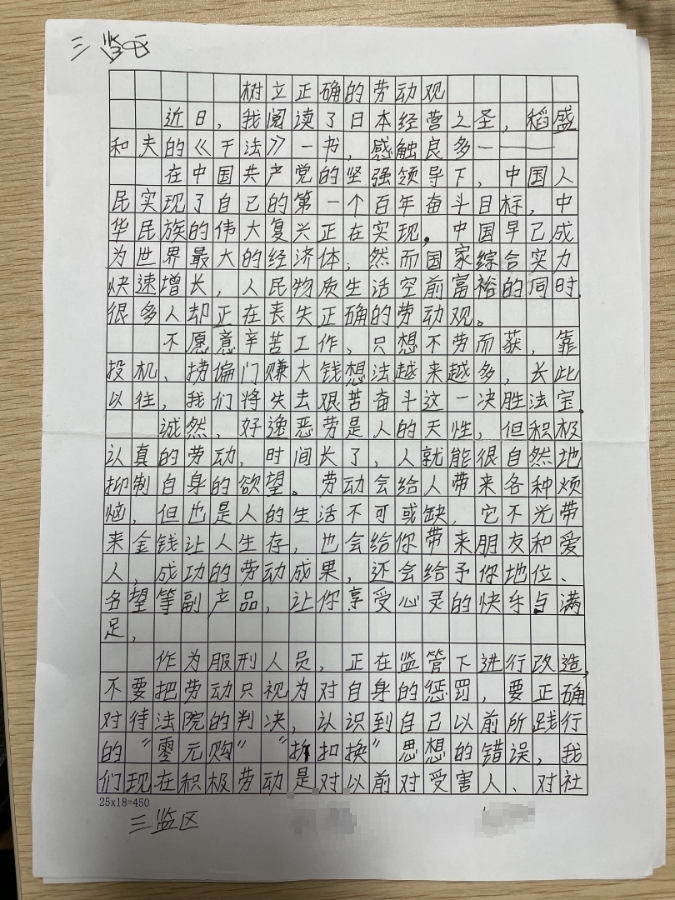 三监区
树立正确的劳动观
近日，我阅读了日本经营之圣，稻盛
和夫的《干法》一书，感触良多——
在中国共产党的坚强领导下，中国人
民实现了自己的第一个百年奋斗目标，中
华民族的伟大复兴正在实现。中国早已成
为世界最大的经济体，然而国家综合实力
快速增长，人民物质生活空前富裕的同时，
很多人却正在丧失正确的劳动观。
不愿意辛苦工作，只想不劳而获，靠
投机、捞偏门赚大钱想法越来越多，长此
以往，我们将失去艰苦奋斗这一决胜法宝。
诚然，好逸恶劳是人的天性，但积极
认真的劳动，时间长了，人就能很自然地
抑制自身的欲望。劳动会给人带来各种烦
恼，但也是人的生活不可或缺，它不光带
来金钱让人生存，也会给你带来朋友和爱
人，成功的劳动成果，还会给予你地位、
名望等副产品，让你享受心灵的快乐与满
足，
作为服刑人员，正在监管下进行改造，
不要把劳动只视为对自身的惩罚，要正确
对待法院的判决，认识到自己以前所践行
的"零元购""折扣换"思想的错误，我
们现在积极劳动是对以前对受害人、对社
25x18=450
三监区